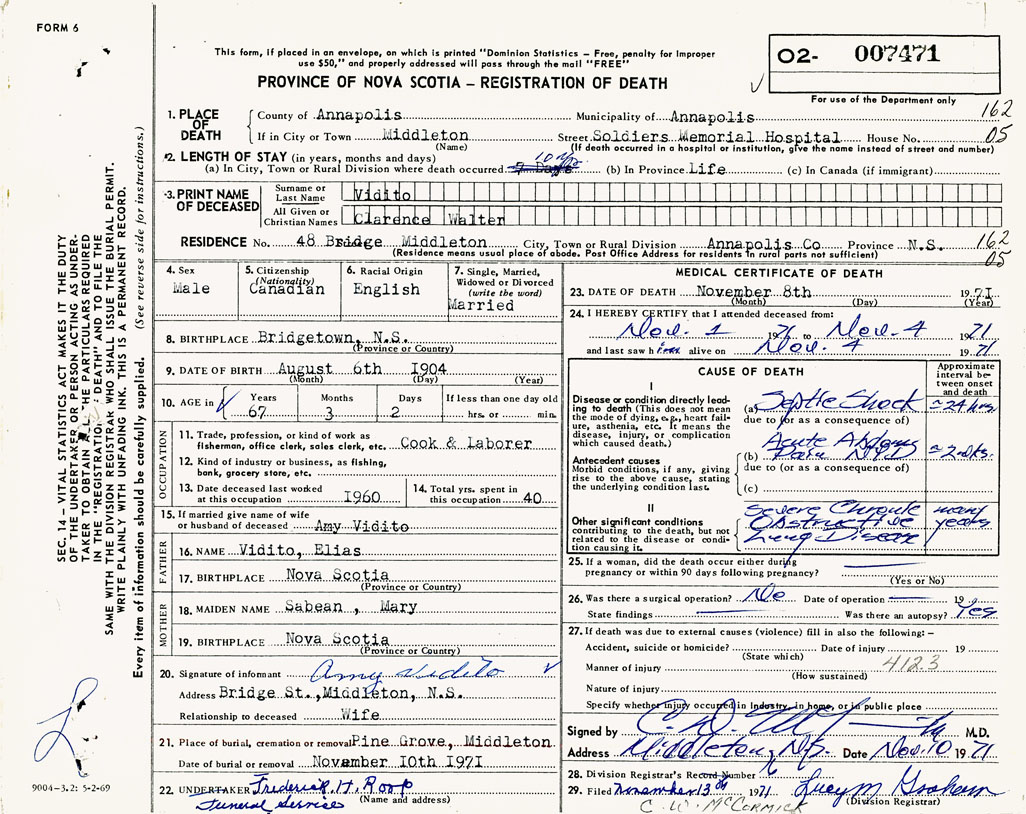 FORM 6
This form, if placed in an envelope, on which is printed "Dominion Statistics – Free, penalty for improper
use $50," and properly addressed will pass through the mail "FREE"
PROVINCE OF NOVA SCOTIA – REGISTRATION OF DEATH
02- 007471
For use of the Department only
SEC. 14 – VITAL STATISTICS ACT MAKES IT THE DUTY
OF THE UNDERTAKER OR PERSON ACTING AS UNDER-
TAKER TO OBTAIN ALL THE PARTICULARS REQUIRED
IN THE "REGISTRATION OF DEATH" AND TO FILE THE
SAME WITH THE DIVISION REGISTRAR WHO SHALL ISSUE THE BURIAL PERMIT.
WRITE PLAINLY WITH UNFADING INK. THIS IS A PERMANENT RECORD.
Every item of information should be carefully supplied. (See reverse side for instructions.)
1. PLACE OF DEATH
County of Annapolis Municipality of Annapolis 162
If in City or Town Middleton Street Soldiers Memorial Hospital House No. 05
(Name) (If death occurred in a hospital or institution, give the name instead of street and number)
2. LENGTH OF STAY (in years, months and days)
(a) In City, Town or Rural Division where death occurred 7 Days 10 yrs (b) In Province Life (c) In Canada (if immigrant)
3. PRINT NAME OF DECEASED
Surname or Last Name Vidito
All Given or Christian Names Clarence Walter
RESIDENCE No. 48 Bridge Middleton City, Town or Rural Division Annapolis Co Province N.S. 162
(Residence means usual place of abode. Post Office Address for residents in rural parts not sufficient) 05
4. Sex Male
5. Citizenship (Nationality) Canadian
6. Racial Origin English
7. Single, Married, Widowed or Divorced (write the word) Married
8. BIRTHPLACE Bridgetown, N.S.
(Province or Country)
9. DATE OF BIRTH August 6th 1904
(Month) (Day) (Year)
10. AGE in Years 67 Months 3 Days 2 If less than one day old hrs. or min.
OCCUPATION
11. Trade, profession, or kind of work as
fishermen, office clerk, sales clerk, etc. Cook & Laborer
12. Kind of industry or business, as fishing,
bank, grocery store, etc.
13. Date deceased last worked at this occupation 1960
14. Total yrs. spent in this occupation 40
15. If married give name of wife
or husband of deceased Amy Vidito
FATHER
16. NAME Vidito, Elias
17. BIRTHPLACE Nova Scotia
(Province or Country)
MOTHER
18. MAIDEN NAME Sabean, Mary
19. BIRTHPLACE Nova Scotia
(Province or Country)
20. Signature of informant Amy Vidito
Address Bridge St., Middleton, N.S.
Relationship to deceased Wife
21. Place of burial, cremation or removal Pine Grove, Middleton
Date of burial or removal November 10th 1971
22. UNDERTAKER Frederick H. Roop
Funeral Service (Name and address)
9004-3.2: 5-2-69
MEDICAL CERTIFICATE OF DEATH
23. DATE OF DEATH November 8th 1971
(Month) (Day) (Year)
24. I HEREBY CERTIFY that I attended deceased from:
Nov. 1 1971 to Nov. 4 1971
and last saw him alive on Nov. 4 1971
CAUSE OF DEATH
Approximate interval between onset and death
I
Disease or condition directly lead-
ing to death (This does not mean
the mode of dying, e.g., heart fail-
ure, asthenia, etc. It means the
disease, injury, or complication
which caused death.)
(a) Septic Shock ≈24 hrs
due to (or as a consequence of)
Antecedent causes
Morbid conditions, if any, giving
rise to the above cause, stating
the underlying condition last.
(b) Acute Abdom
Pain NYD
due to (or as a consequence of)
(c)
II
Other significant conditions
contributing to the death, but not
related to the disease or condi-
tion causing it.
Severe Chronic many
Obstructive years
Lung Disease
25. If a woman, did the death occur either during
pregnancy or within 90 days following pregnancy?
(Yes or No)
26. Was there a surgical operation? No Date of operation 19
State findings Was there an autopsy? Yes
27. If death was due to external causes (violence) fill in also the following: –
Accident, suicide or homicide? Date of injury 19
(State which) 412.3
Manner of injury
(How sustained)
Nature of injury
Specify whether injury occurred in industry, in home, or in public place
Signed by M.D.
Address Middleton, N.S. Date Nov. 10 1971
28. Division Registrar's Record Number
29. Filed November 13th 1971 Lucy M Graham
C. W. McCORMICK (Division Registrar)